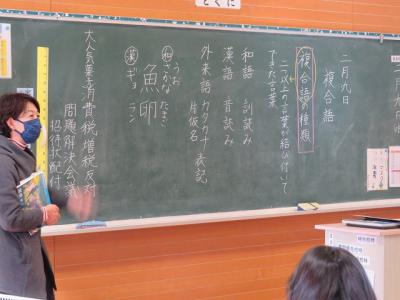 二月九日
複合語
複合語の種類
二つ以上の言葉が結び付いて
できた言葉
和語 訓読み
漢語 音読み
外来語 カタカナ表記
片仮名
うお
さかな たまご
魚卵
ギョ ラン
大人気菓子消費税増税反対
問題解決会議
招待状配付